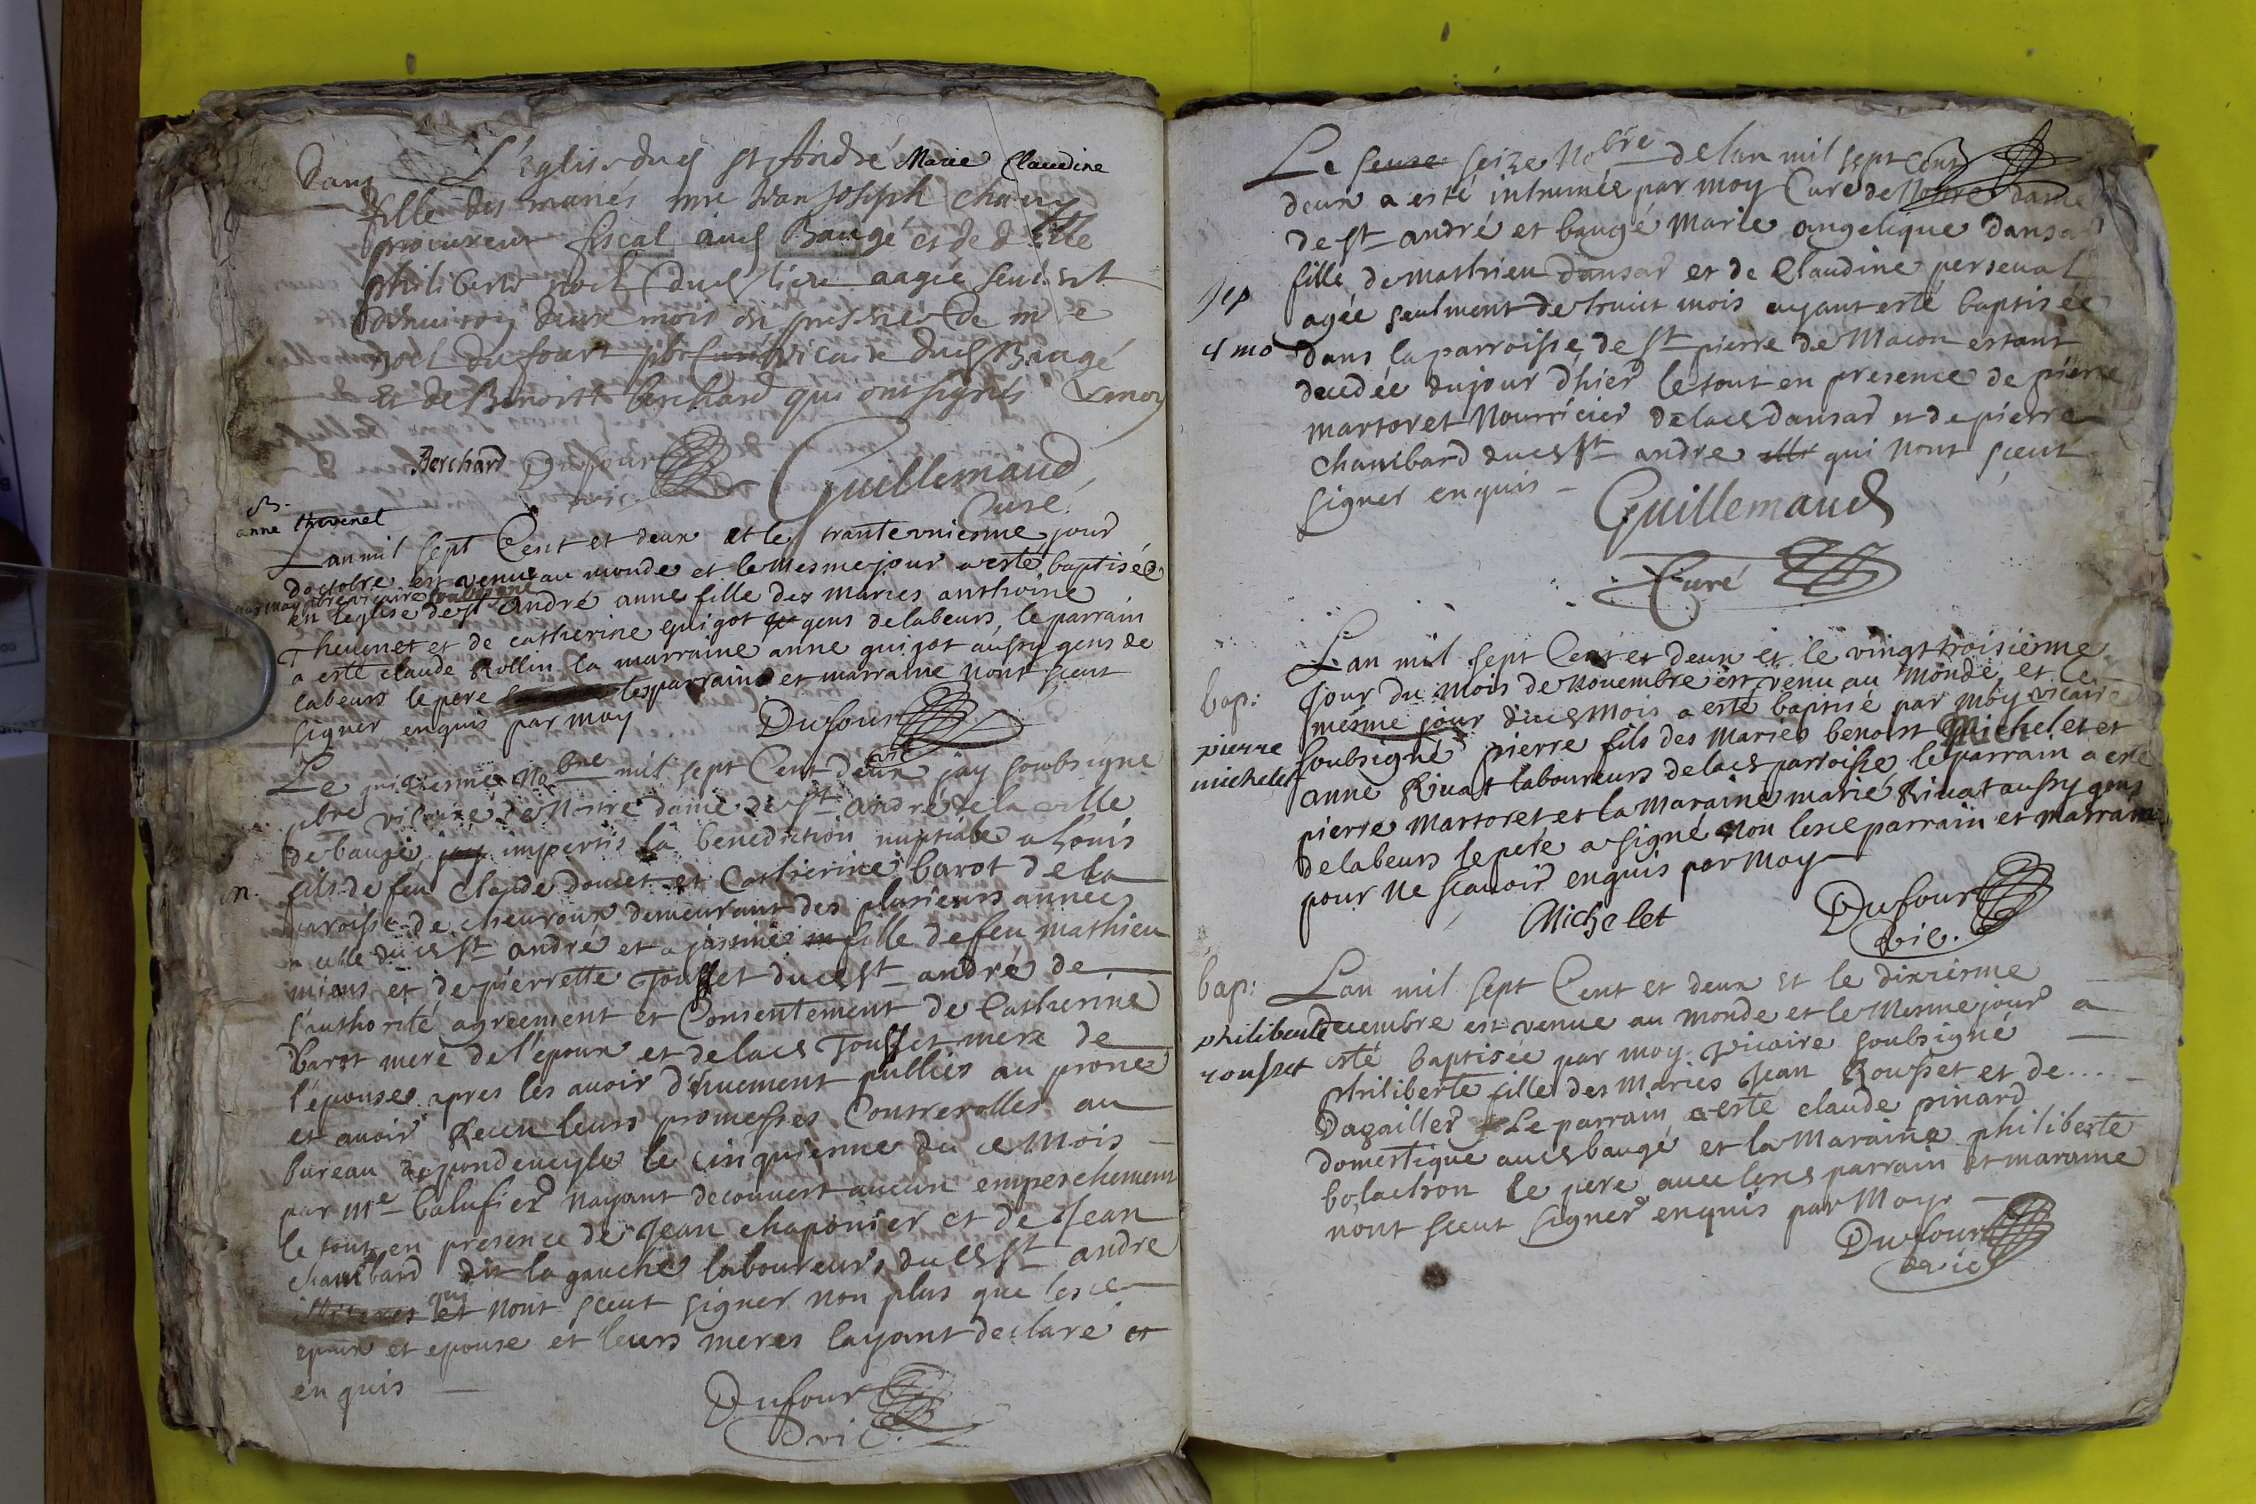 Dans L'Eglise dud st André Marie Claudine
fille des mariés mre Jean Joseph
procureur fiscal aud Baugé et de dlle
philiberte noel dud lieu aagée seulemt
denuiron deux mois en presence de mre
noel dufour pbre vicaire dud Baugé
et de Benoist berchard qui ont signés
Berchard Dufour vic. Guillemaud
Curé
B.
anne theuenet
Lan mil sept Cent et deux et le trante vniesme jour
doctobre est venue au monde et le mesme jour a esté baptisée
par moy pbre vicaire soubsigné
en leglise de st André anne fille des maries anthoine
Theuenet et de catherine guigot gens de labeurs, le parrain
a esté claude Rollin la marraine anne guigot aussy gens de
labeurs le pere les parrains et marraine nont sceut
signer enquis par moy Dufour
vic
Le quinziesme No bre mil sept Cent deux jay soubsigné
pbre vicaire de Nostre dame de St André de la ville
de baugé jay impertis la benediction nuptiale a Louis
n. fils de feu Claude doucet et Catherine barot de la
paroisse de cheuroux demeurant des plusieurs année
en celle dud St André et a fille de feu mathieu
mians et de pierrette Tousset dud St andré de
l'authorité agreement et Consentement de Catherine
barot mere de l'époux et de lad Tousset mere de
l'épouse apres les auoir d'huement publiés au prone
et auoir Receu leurs promesses Controrolles au
bureau de pondeueyle le cinquiesme du ce Mois
par Me balufier Nayant decouvert aucun empeschement
le tout en presence de Jean chaponier et de Jean
chambard dit la gauche laboureurs dud St andre
qui
et nont sceut signer non plus que lesd
epoux et epouse et leurs meres layant declaré et
enquis
Dufour
vic.
Le seize No bre de lan mil sept Cent
deux a esté inhumée par moy Curé de Nostre dame
de St andré et baugé Marie angelique dansar
fille de mathieu dansar et de Claudine perseual
sep
agée seulment de huict mois ayant esté baptisée
4 mo
dans la parroisse de St pierre de Macon estant
decedée du jour dhier le tout en presence de pierre
martoret Nourricier de lad dansar et de pierre
chambard dud St andre qui nont sceut
signer enquis Guillemaud
Curé
Lan mil sept Cent et deux et le vingt troisieme
bap: Jour du mois de Nouembre est venu au monde et le
mesme jour dud Mois a esté baptisé par moy vicaire
pierre soubsigné pierre fils des Mariés benoist Michelet et
michelet anne Riuat laboureurs de lad parroisse le parrain a esté
pierre Martoret et la Maraine marie Riuat aussy gens
de labeurs le pere a signé Non lesd parrain et marraine
pour ne scauoir enquis par Moy
Michelet Dufour
vic.
bap: Lan mil sept Cent et deux et le dixiesme
philiberte Decembre est venue au monde et le Mesme jour a
rousset esté baptisée par moy vicaire soubsigné
philiberte fille des Maries Jean Rousset et de ...
Dagailler Le parrain a esté claude pinard
domestique aud baugé et la Maraine philiberte
bolachon le pere auec lesd parrain et maraine
nont sceut signer enquis par Moy
Dufour
vic